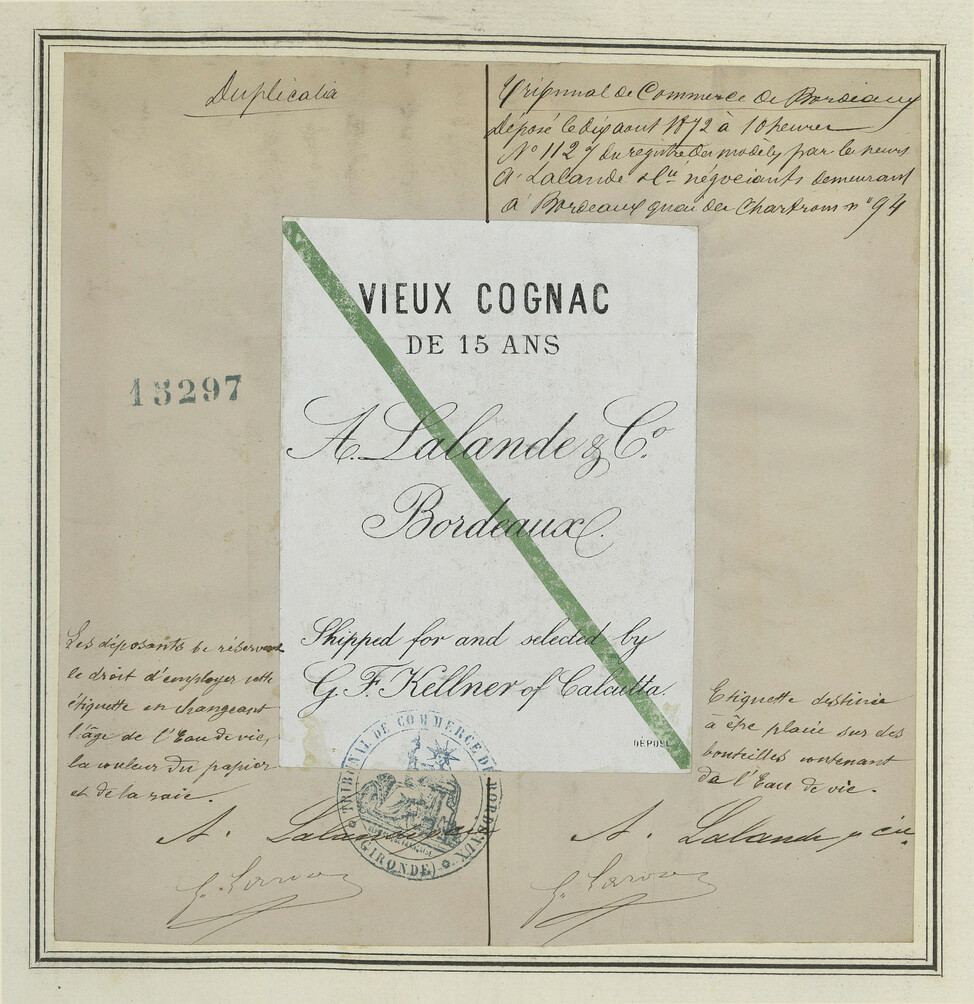 Duplicata
Tribunal de Commerce de Bordeaux
Déposé le dix aout 1872 à 10 heures
N° 1127 du registre des modèles par les sieurs
A. Lalande & Cie négociants demeurant
à Bordeaux quai des Chartrons n° 94
VIEUX COGNAC
DE 15 ANS
15297
A. Lalande & Co.
Bordeaux.
Shipped for and selected by
G. F. Kellner of Calcutta.
DÉPOSÉ
Les déposants se réservent
le droit d'employer cette
étiquette en changeant
l'âge de l'Eau de vie,
la couleur du papier
et de la raie.
Etiquette destinée
à être placée sur des
bouteilles contenant
de l'Eau de vie.
TRIBUNAL DE COMMERCE DE BORDEAUX
(GIRONDE)
A. Lalande
A. Lalande & cie